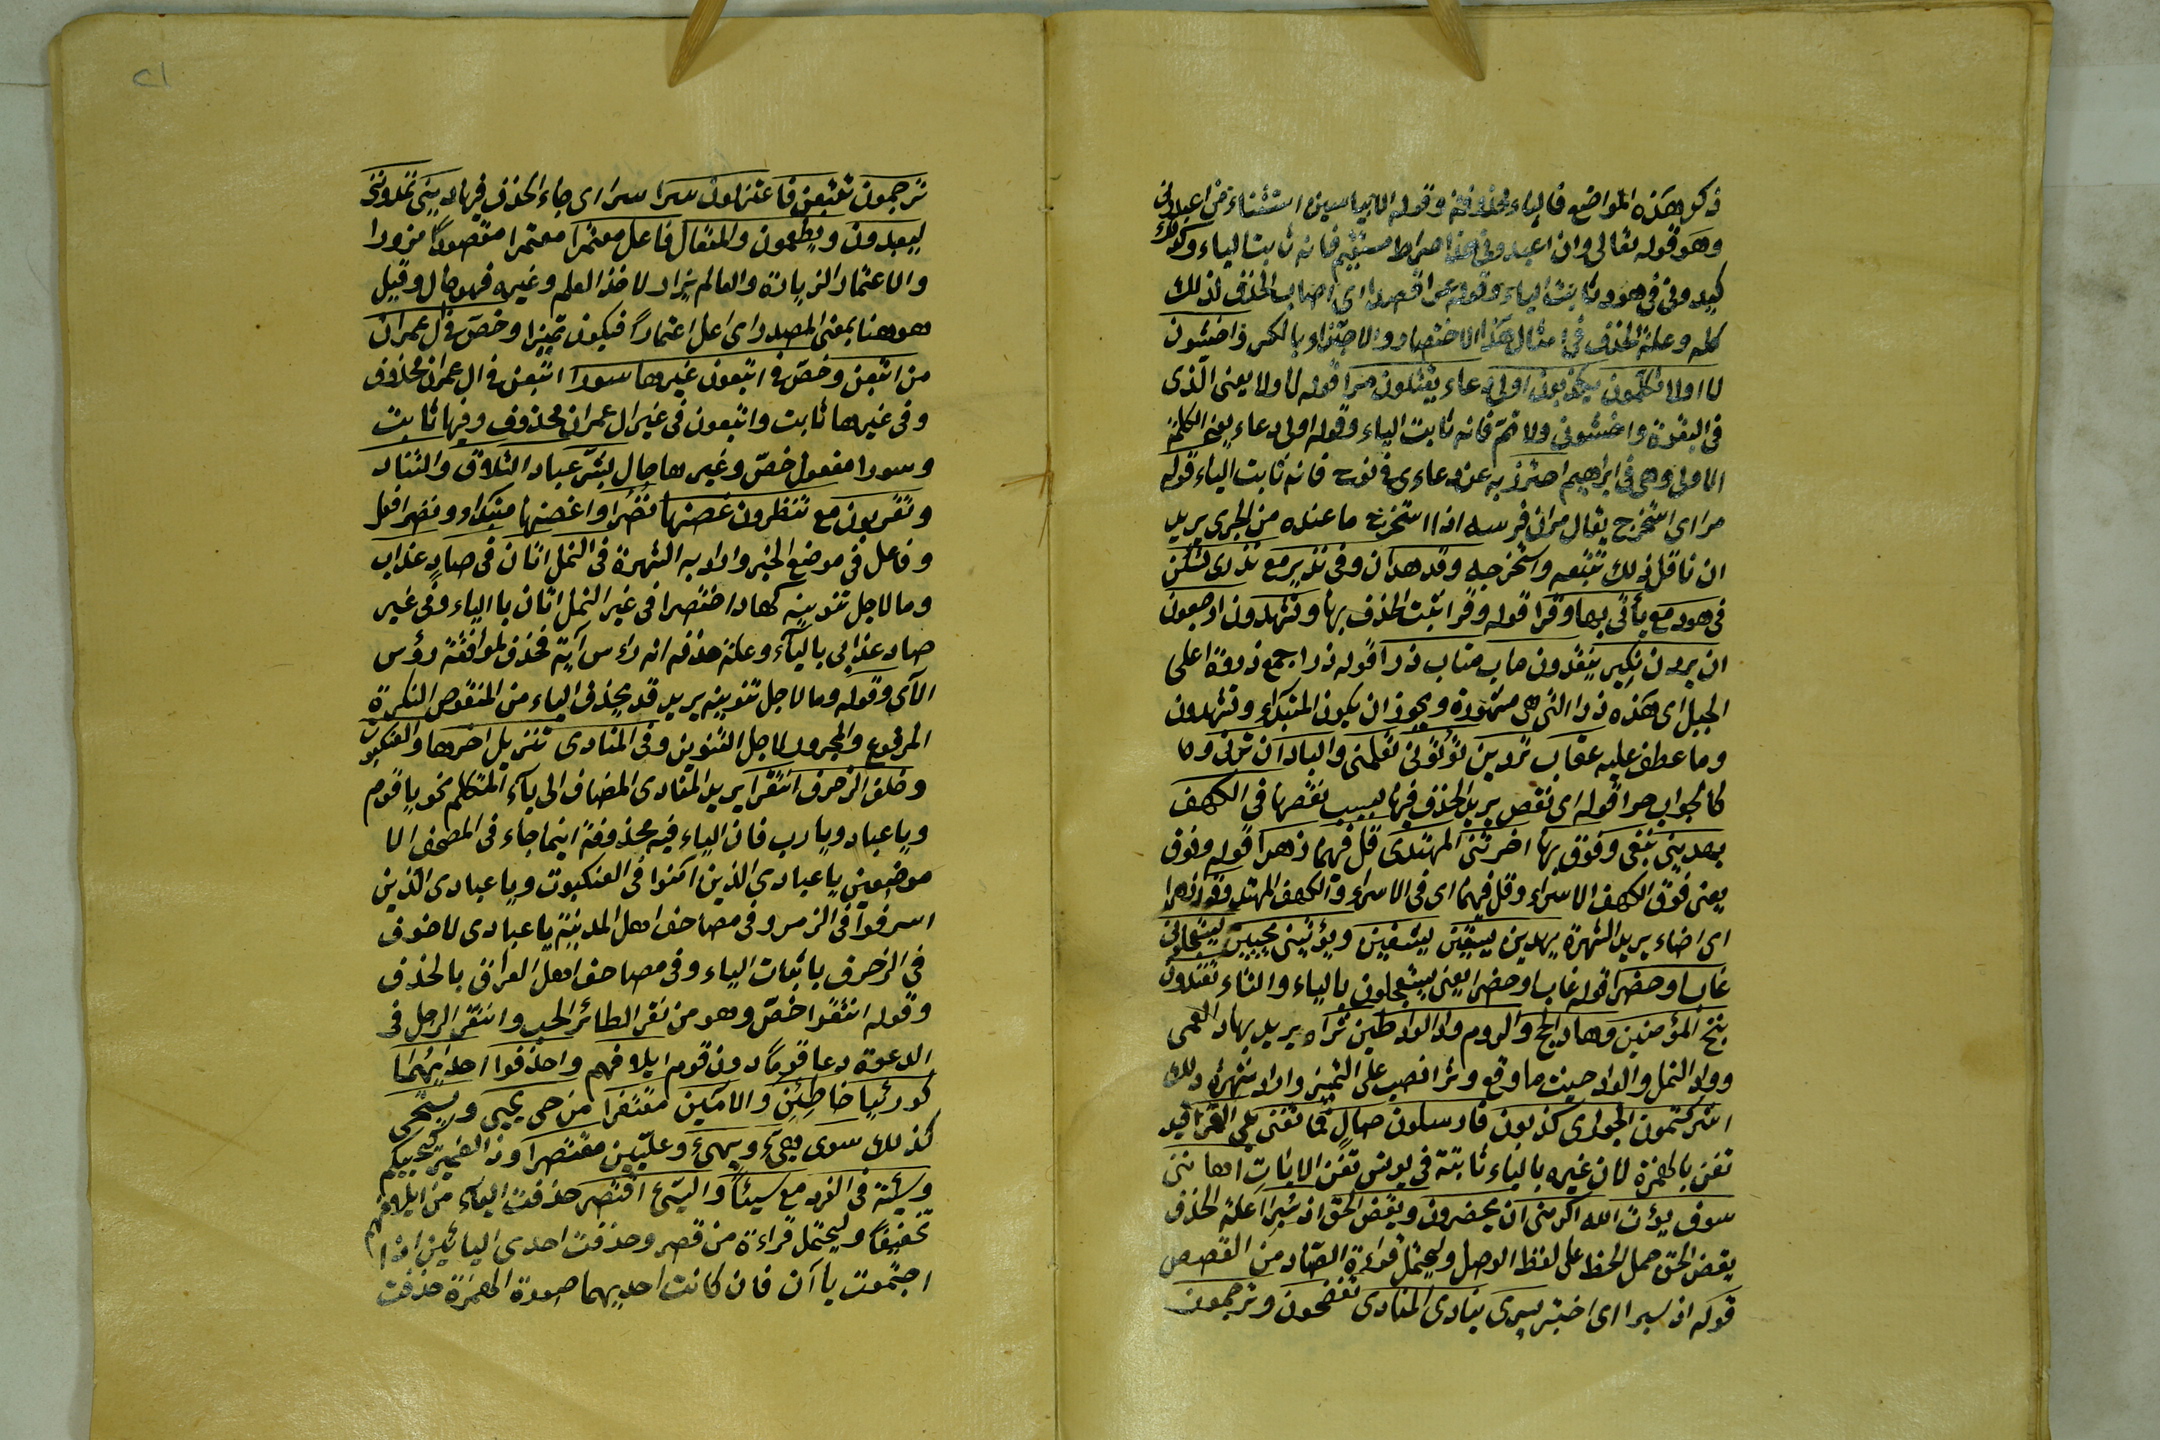 ذكر بهذه المواضع فالياء محذوفة وقوله الا بياسين استثناء من اعبدونى
وهو قوله تعالى وان اعبدونى هذا صراط مستقيم فانه ثابت الياء وكذلك
كيدونى فى هود ثابت الياء وقوله عرا قصدا اى اصاب الحذف لذلك
كله وعلة الحذف فى امثال هذا الاختصار والاجتزاء بالكسر واخشون
لا اولا تكلمون يكذبون اولى دعاء يقتلون مرا قوله لا ولا يعنى الذى
فى البقرة واخشونى ولاتم فانه ثابت الياء وقوله اولى دعاء يعنى الكلمة
الاولى وهى فى ابراهيم احترز به عن دعاءى فى نوح فانه ثابت الياء قوله
مرا اى استخرج يقال مران فرسه اذا استخرج ما عنده من الجرى يريد
ان ناقل ذلك تتبعه واستخرجه وقد هدان وفى نذير مع نذرى تسئلن
فى هود مع يأتى بها وقرا قوله وقرا اثبت الحذف بها وتشهدون ارجعون
ان يردن نكير ينقذون ماب متاب ذرا قوله ذرا جمع ذروة اعلى
الجبل اى هذه ذرا التى هى مشهورة ويجوز ان يكون المبتدأ وتشهدون
وما عطف عليه عقاب تردين تؤتونى تعلمنى والباد ان ترنى وكا
كالجواب حوا قوله اى نقص يريد الحذف فيها بسبب نقصها فى الكهف
يهدينى نبغى وفوق بها اخرتنى المهتدى قل فيهما زهرا قوله وفوق
يعنى فوق الكهف الاسراء وقل فيهما اى فى الاسراء والكهف المهتد وقوله زهرا
اى اضاء يريد الشهرة يهدين يسقين يشفين ويؤتينى يحيين يستعجلونى
غاب او حضرا قوله غاب او حضرا يعنى يستعجلون بالياء والتاء تفندون
ننج المؤمنين وهاد الحج والروم واد الوادطين ثراه يريد بهاد العمى
وواد النمل والواد حيث ما وقع وثرا نصب على التميز واراد شهرة ذلك
اشركتمون الجوارى كذبون فارسلون صال فما تغنى يلى القمر اقيد
تغن بالهمزة لان غيره بالياء ثابتة فى يونس تغن الايات اهاننى
سوف يؤت الله اكرمنى ان يحضرون ويقض الحق اذ سبرا علة الحذف
يقض الحق حمل الحظ على لفظ الوصل وليحتمل قراءة الصاد من القصص
قوله اذ سبرا اى اختبر يسرى ينادى المنادى تفضحون وترجمون
٢١
ترجمون تتبعن فاعتزلون سرا سرا اى جاء الحذف فيها دينى تمدوننى
ليعبدون ويطعمون والمتعال فاعل معتمرا معتمرا مقصودا مزورا
والاعتمار الزيارة والعالم يزار لاخذ العلم وغيره فهو حال وقيل
هو هنا بمعنى المصدر اى اعل اعتمارا فيكون تميزا وخص فى ال عمران
من اتبعن وخص فى اتبعون غيرها سورا اتبعن فى ال عمران محذوف
وفى غيرها ثابت واتبعون فى غير ال عمران محذوف وفيها ثابت
وسورا مفعول خص وغيرها حال بشر عباد التلاق والتناد
وتقربون مع تنظرون غصنها نضرا وا غصنها مبتدا ونضرا فعل
وفاعل فى موضع الخبر واراد به الشهرة فى النمل اتان فى صاد عذاب
وما لاجل تنوينه كهاد اختصرا فى غير النمل اتان بالياء وفى غير
صاد عذابى بالياء وعلة حذفه انه راس آية فحذف لموافقة رؤس
الآى وقوله وما لاجل تنوينه يريد قد يحذف الياء من المنقوص النكرة
المرفوع والمجرور لاجل التنوين وفى المنادى تنزيل اخرها والعنكبوت
وخلف الزخرف انتقرا يريد المنادى المضاف الى ياء المتكلم نحو يا قوم
ويا عباد ويا رب فان الياء فيه محذوفة اينما جاء فى المصحف الا
موضعين يا عبادى الذين آمنوا فى العنكبوت ويا عبادى الذين
اسرفوا فى الزمر وفى مصاحف اهل المدينة يا عبادى لا خوف
فى الزخرف باثبات الياء وفى مصاحف اهل العراق بالحذف
وقوله انتقرا خص وهو من نقر الطائر الحب وانتقر الرجل فى
الدعوة دعا قوما دون قوم ايلافهم واحذفوا احديهما
كورئيا خاطئين والاميّن مقتفرا من حى يحيى ويستحى
كذلك سوى يهيئ ويهيئ وعليين مقتصرا وذا الضمير كيحييكم
وسيئة فى الفرد مع سيئا والسيئ اقتصر حذفت الياء من ايلافهم
تخفيفا وليحتمل قراءة من قصر وحذفت احدى اليائين اذا
اجتمعت يا آن فان كانت احديهما صورة الهمزة حذفت